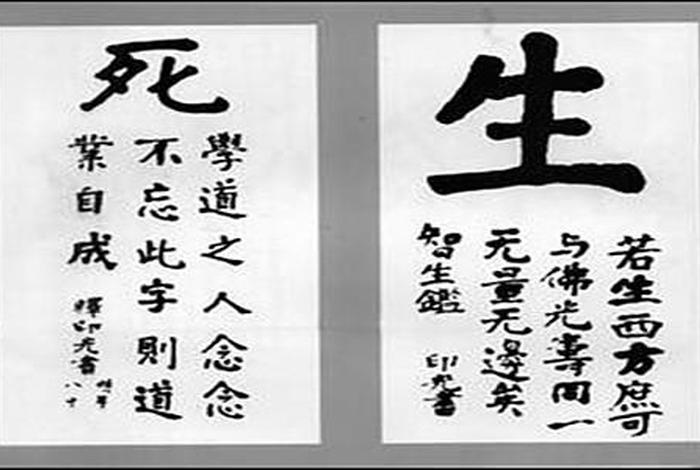 生
若生西方庶可
与佛光壽同一
无量无邊矣
智生鑑 印光書
死
學道之人念念
不忘此字則道
業自成
釋印光書
八十